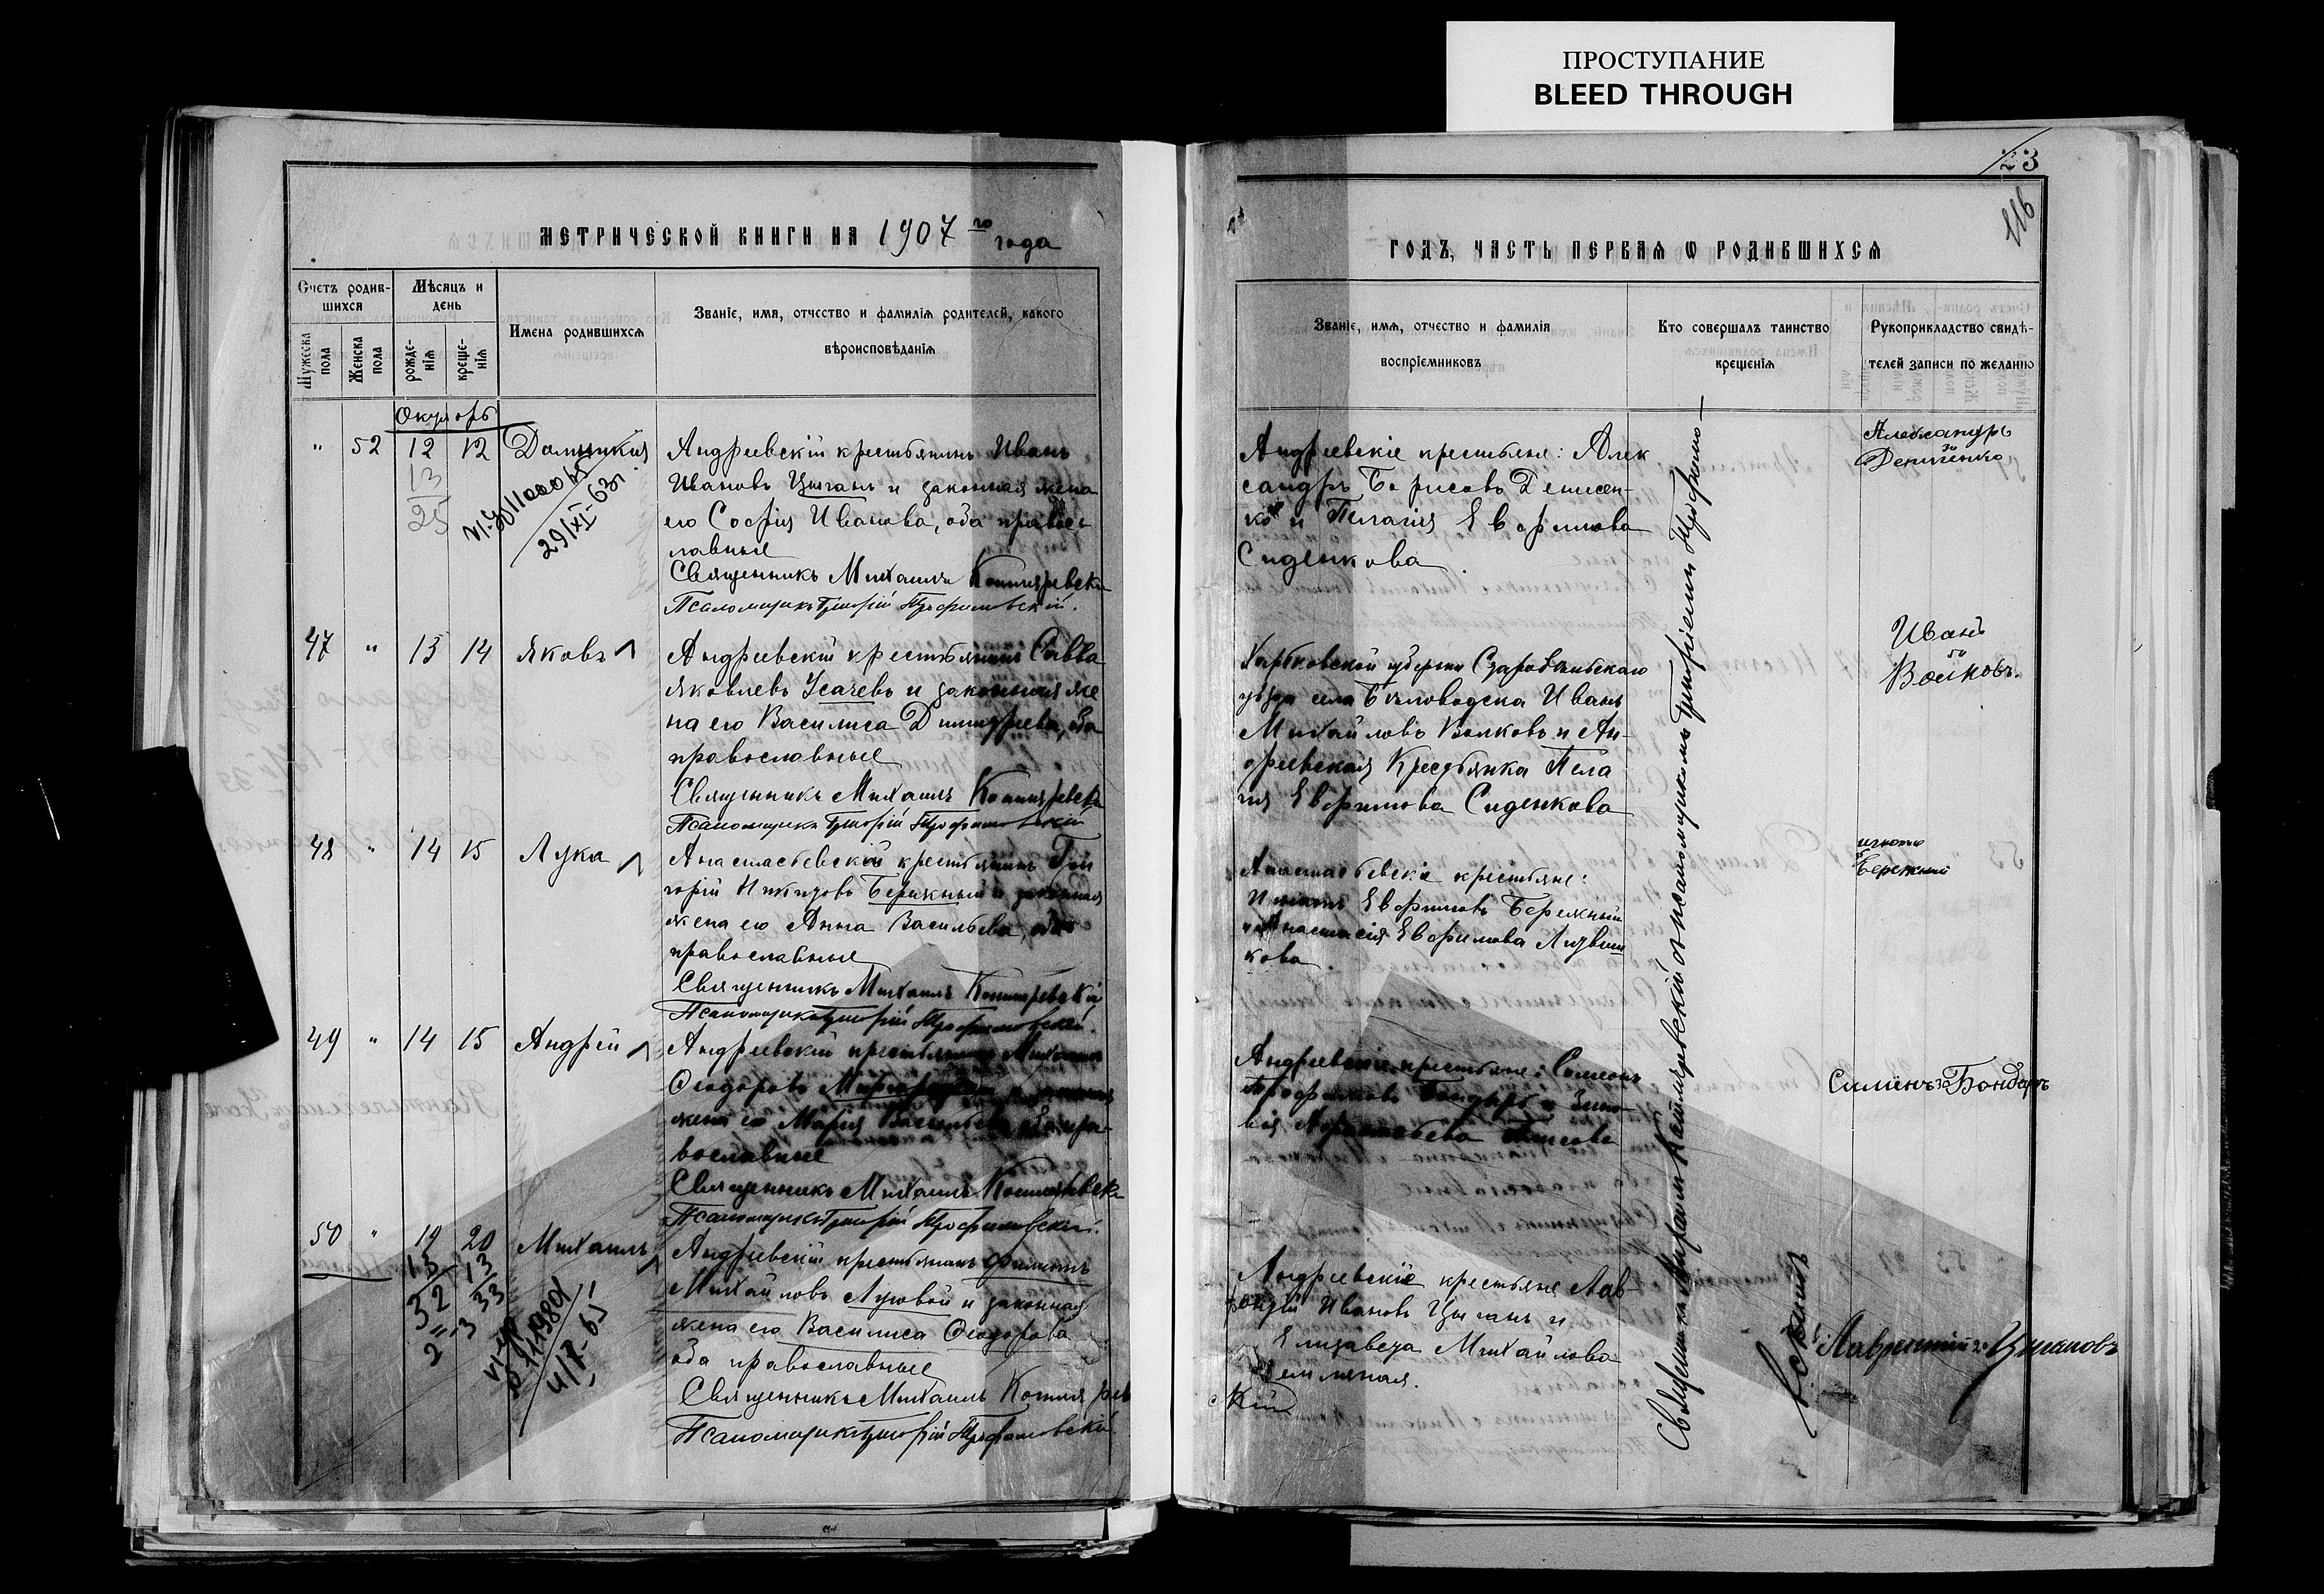 ПРОСТУПАНИЕ
BLEED THROUGH
23
116
МЕТРИЧЕСКОЙ КНИГИ НА 1907 го года
Счетъ родив-
шихся
Мѣсяцъ и
день
Имена родившихся
Званіе, имя, отчество и фамилія родителей, какого
вѣроисповѣданія
Мужеска
пола
Женска
пола
рожде-
нія
креще-
нія
Октябрь
" 52 12 12 Домникія
13
25
29/XI-63г.
Андреевскій крестьянинъ Иванъ
Ивановъ Цыганъ и законная жена
его Софія Иванова, оба правос-
лавные
Священникъ Михаилъ Котляревскій
Псаломщикъ Григорій Трофимовскій.
47 " 13 14 Яковъ
Андреевскій крестьянинъ Савва
Яковлевъ Усачевъ и законная же
на его Василиса Димитріева, оба
православные
Священникъ Михаилъ Котляревскій
Псаломщикъ Григорій Трофимовскій
48 " 14 15 Лука
Анастасьевскій крестьянинъ Гри
горій Никитовъ Бережный и законная
жена его Анна Васильева, оба
православные
Священникъ Михаилъ Котляревскій
Псаломщикъ Григорій Трофимовскій.
49 " 14 15 Андрей
Андреевскій крестьянинъ Михаилъ
Ѳеодоровъ
жена его Марія Васильева, оба пра-
вославные
Священникъ Михаилъ Котляревскій
Псаломщикъ Григорій Трофимовскій.
50 " 19 20 Михаилъ
13 13
32 33
Андреевскій крестьянинъ Филиппъ
Михайловъ Луговой и законная
жена его Василиса Ѳеодорова
оба православные
Священникъ Михаилъ Котляров
Псаломщикъ Григорій Трофимовскій
ГОДЪ, ЧАСТЬ ПЕРВАЯ Ѡ РОДИВШИХСЯ
Званіе, имя, отчество и фамилія
воспріемниковъ
Кто совершалъ таинство
крещенія
Рукоприкладство свидѣ-
телей записи по желанію
Андреевскіе крестьяне: Алек
сандръ Борисовъ Денисен-
ко и Пелагія Евфимова
Сиденкова
Александръ
Денисенко
Харьковской губерніи Старобѣльскаго
уѣзда села Бѣловодска Иванъ
Михайловъ Волковъ и Ан-
дреевская крестьянка Пела
гія Евфимова Сиденкова
Иванъ
Волковъ.
Анастасьевскіе крестьяне:
Игнатъ Евфимовъ Бережный
и Анастасія Евфимова Литвин
кова.
Бережный
Андреевскіе крестьяне: Симеонъ
Трофимовъ Бондарь и Зино-
вія
Симёнъ Бондарь
Андреевскіе крестьяне Лав-
рентій Ивановъ Цыганъ и
Елизавета Михайлова
Земляная.
скій
Лаврентій Цыгановъ
Священникъ Михаилъ Котляревскій съ псаломщикомъ Григоріемъ Трофимо-
вскимъ